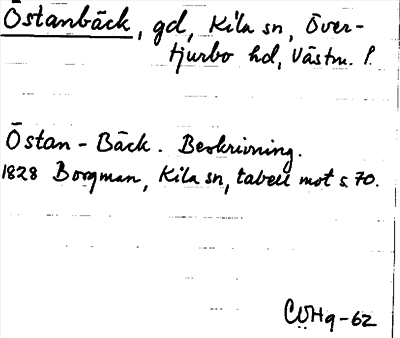 Östanbäck, gd, Kila sn, Över-
tjurbo hd, Västm. l.
Östan-Bäck. Beskrivning.
1828 Borgman, Kila sn, tabell mot s. 70.
CWHg-62